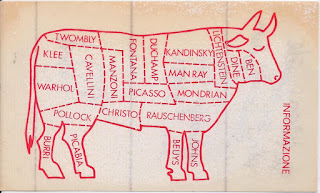 TWOMBLY
KLEE
CAVELLINI
MANZONI
FONTANA
DUCHAMP
KANDINSKY
LICHTENSTEIN
DINE
BEN
WARHOL
PICASSO
MAN RAY
MONDRIAN
POLLOCK
CHRISTO
RAUSCHENBERG
BURRI
PICABIA
BEUYS
JOHNS
INFORMAZIONE